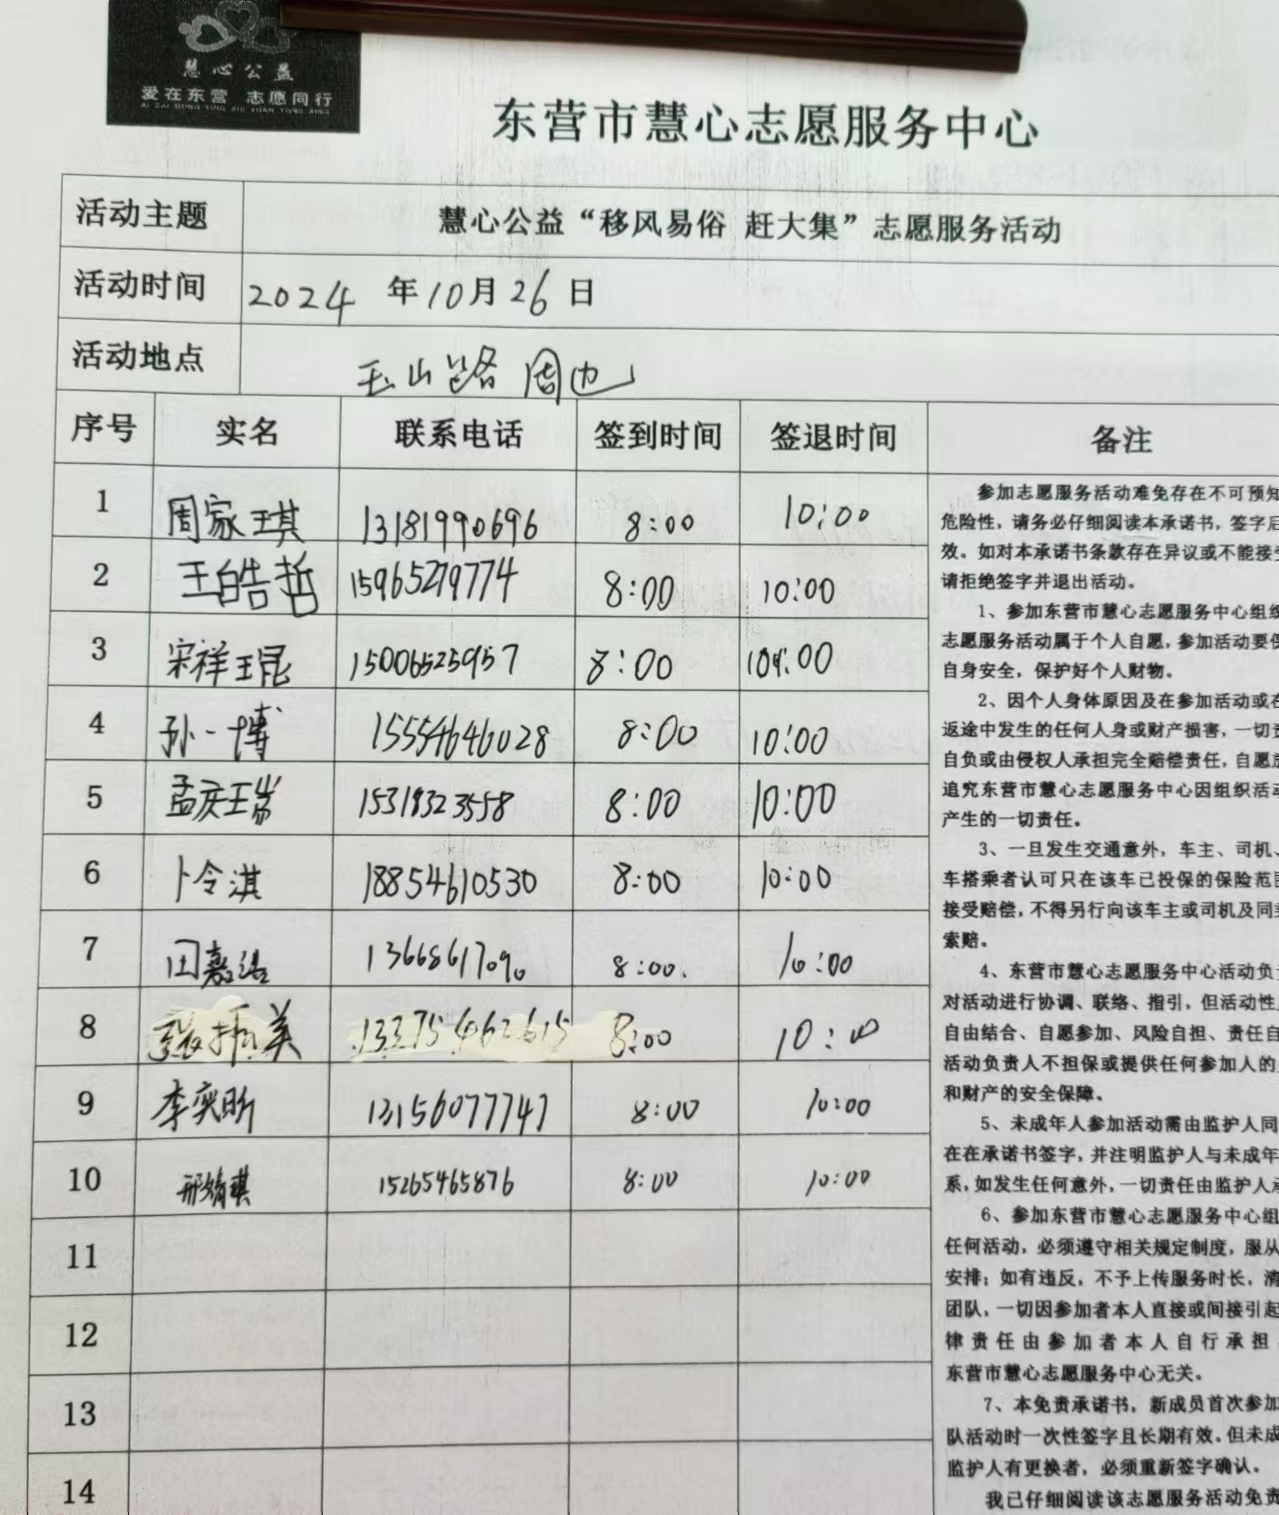 慧心公益
爱在东营 志愿同行
AI ZAI DONG YING ZHI YUAN TONG XING
东营市慧心志愿服务中心
活动主题 慧心公益“移风易俗 赶大集”志愿服务活动
活动时间 2024 年10月26日
活动地点 玉山路周边
序号 实名 联系电话 签到时间 签退时间 备注
1 周家琪 13181990696 8:00 10:00
2 王皓哲 15965279774 8:00 10:00
3 宋祥琨 15006525957 8:00 10:00
4 孙一博 15554646028 8:00 10:00
5 孟庆 15318323558 8:00 10:00
6 卜令淇 18854610530 8:00 10:00
7 田嘉浩 13668617090 8:00. 10:00
8 张振美 8:00 10:00
9 李奕昕 13156077747 8:00 10:00
10 邢靖琪 15265465876 8:00 10:00
11
12
13
14
参加志愿服务活动难免存在不可预知
危险性，请务必仔细阅读本承诺书，签字后
效。如对本承诺书条款存在异议或不能接受
请拒绝签字并退出活动。
1、参加东营市慧心志愿服务中心组织
志愿服务活动属于个人自愿，参加活动要保
自身安全，保护好个人财物。
2、因个人身体原因及在参加活动或在
返途中发生的任何人身或财产损害，一切责
自负或由侵权人承担完全赔偿责任，自愿放
追究东营市慧心志愿服务中心因组织活动
产生的一切责任。
3、一旦发生交通意外，车主、司机、
车搭乘者认可只在该车已投保的保险范围
接受赔偿，不得另行向该车主或司机及同乘
索赔。
4、东营市慧心志愿服务中心活动负责
对活动进行协调、联络、指引，但活动性
自由结合、自愿参加、风险自担、责任自
活动负责人不担保或提供任何参加人的
和财产的安全保障。
5、未成年人参加活动需由监护人同
在在承诺书签字，并注明监护人与未成年
系，如发生任何意外，一切责任由监护人承
6、参加东营市慧心志愿服务中心组
任何活动，必须遵守相关规定制度，服从
安排；如有违反，不予上传服务时长，清
团队，一切因参加者本人直接或间接引起
律责任由参加者本人自行承担
东营市慧心志愿服务中心无关。
7、本免责承诺书，新成员首次参加
队活动时一次性签字且长期有效。但未成
监护人有更换者，必须重新签字确认。
我已仔细阅读该志愿服务活动免责